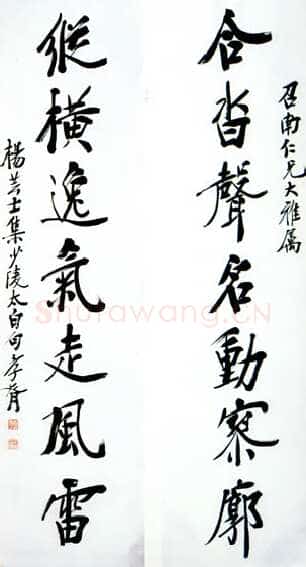 召南仁兄大雅屬
合沓聲名動寥廓
縱橫逸氣走風雷
楊芸士集少陵太白句孝胥
Shufawang.CN